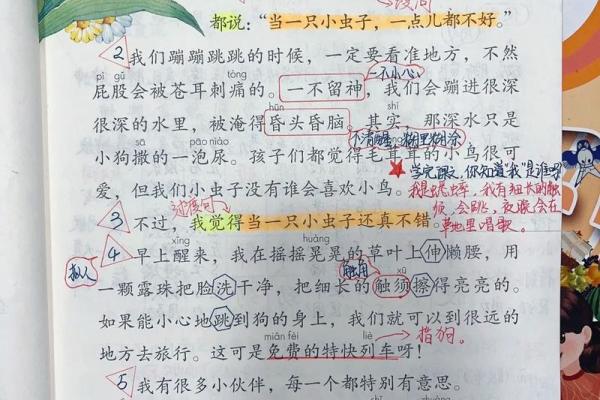 设问
都说："当一只小虫子，一点儿都不好。"
2 我们蹦蹦跳跳的时候，一定要看准地方，不然
pì gǔ tòng 一不小心
屁股会被苍耳刺痛的。一不留神，我们会蹦进很深
hūn shí
很深的水里，被淹得昏头昏脑。其实，那深水只是
不清醒 糊里糊涂
pāo niào
小狗撒的一泡尿。孩子们都觉得毛茸茸的小鸟很可
学完课文，你知道"我"是谁吗
爱，但我们小虫子没有谁会喜欢小鸟。
我是蟋蟀，我有细长的触
须，会跳，夜晚会在
草地里唱歌。
过渡句
3 不过，我觉得当一只小虫子还真不错。
xǐng huàng
4 早上醒来，我在摇摇晃晃的草叶上伸懒腰，用
拟人 触角 xū
一颗露珠把脸洗干净，把细长的触须擦得亮亮的。
如果能小心地跳到狗的身上，我们就可以到很远的
miǎn fèi liè 指狗。
地方去旅行。这可是免费的特快列车呀！
5 我有很多小伙伴，每一个都特别有意思。